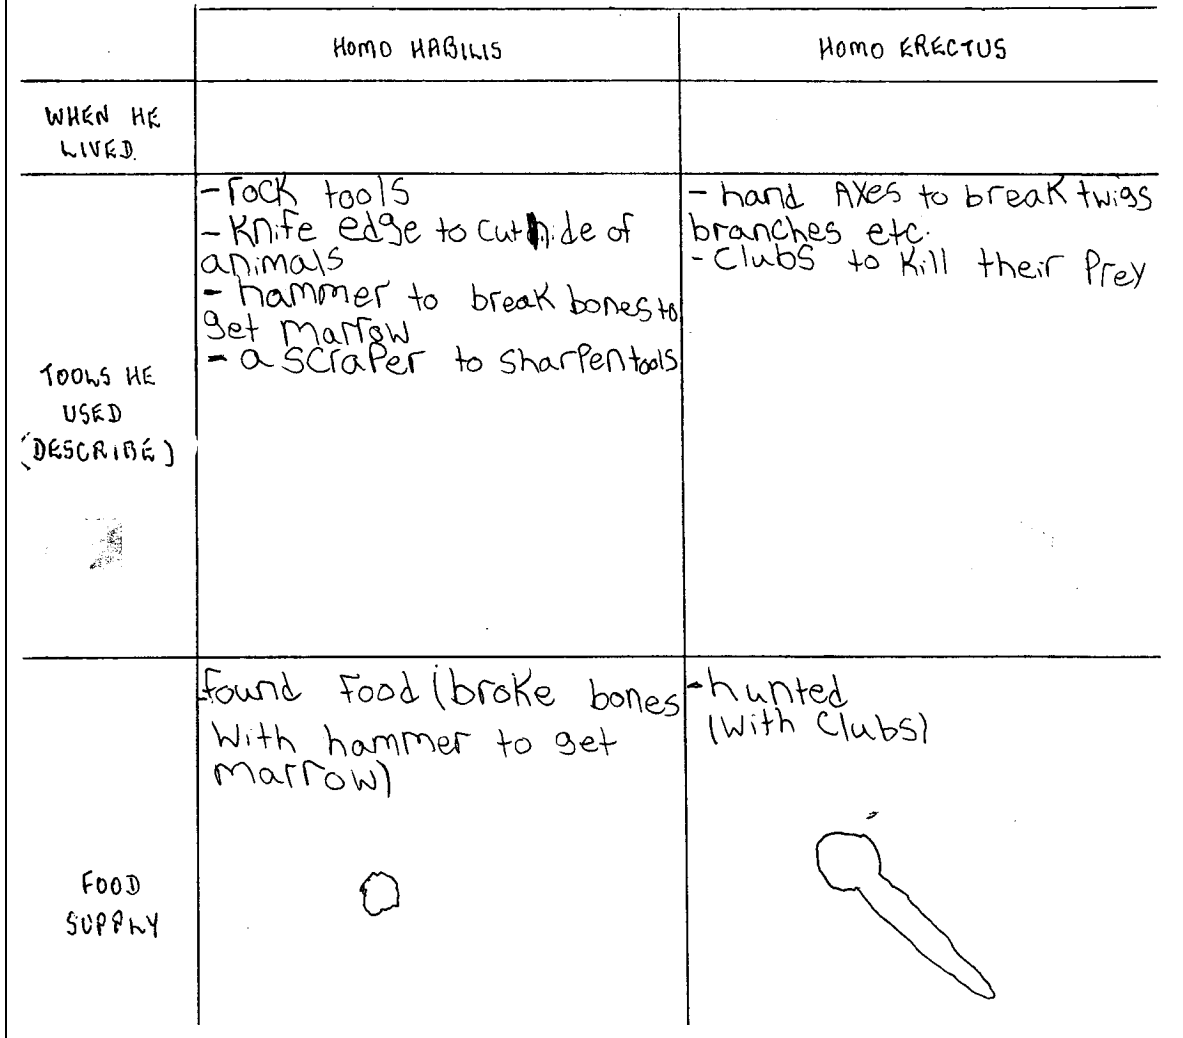 HOMO HABILIS
HOMO ERECTUS
WHEN HE
LIVED.
TOOLS HE
USED
(DESCRIBE)
- rock tools
- Knife edge to cut hide of
animals
- hammer to break bones to
get marrow
- a scraper to sharpen tools
- hand Axes to break twigs
branches etc.
- Clubs to Kill their Prey
FOOD
SUPPLY
found Food (broke bones
With hammer to get
marrow)
- hunted
(With Clubs)